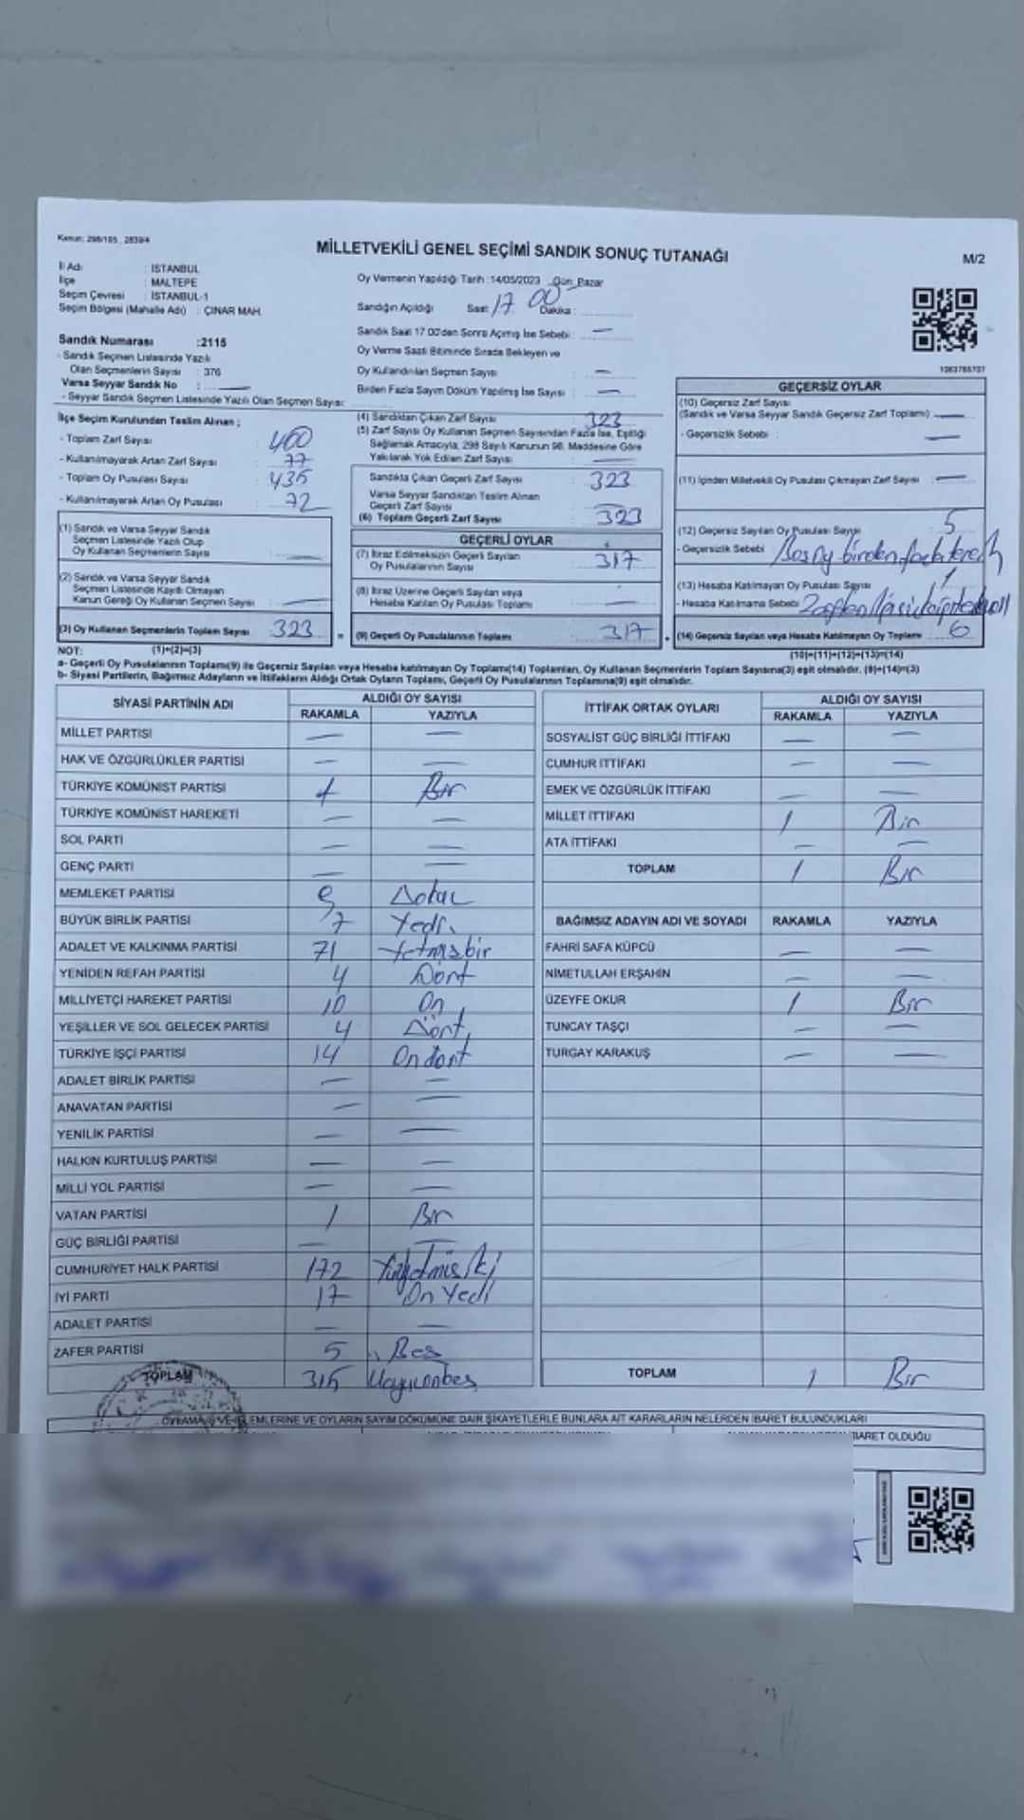 Kanun: 298/105 , 2839/4
MİLLETVEKİLİ GENEL SEÇİMİ SANDIK SONUÇ TUTANAĞI
M/2
İl Adı : İSTANBUL
İlçe : MALTEPE
Seçim Çevresi : İSTANBUL-1
Seçim Bölgesi (Mahalle Adı) : ÇINAR MAH.
Oy Vermenin Yapıldığı Tarih :14/05/2023 Gün: Pazar
Sandığın Açıldığı Saat : 17 Dakika : 00
Sandık Saat 17.00'den Sonra Açılmış İse Sebebi : —
Oy Verme Saati Bitiminde Sırada Bekleyen ve
Oy Kullandırılan Seçmen Sayısı : —
Birden Fazla Sayım Döküm Yapılmış İse Sayısı : —
Sandık Numarası :2115
- Sandık Seçmen Listesinde Yazılı
Olan Seçmenlerin Sayısı : 376
Varsa Seyyar Sandık No : —
- Seyyar Sandık Seçmen Listesinde Yazılı Olan Seçmen Sayısı:
İlçe Seçim Kurulundan Teslim Alınan ;
- Toplam Zarf Sayısı : 400
- Kullanılmayarak Artan Zarf Sayısı : 77
- Toplam Oy Pusulası Sayısı : 435
- Kullanılmayarak Artan Oy Pusulası : 72
(1) Sandık ve Varsa Seyyar Sandık
Seçmen Listesinde Yazılı Olup
Oy Kullanan Seçmenlerin Sayısı : —
(2) Sandık ve Varsa Seyyar Sandık
Seçmen Listesinde Kayıtlı Olmayan
Kanun Gereği Oy Kullanan Seçmen Sayısı : —
(3) Oy Kullanan Seçmenlerin Toplam Sayısı 323 =
(4) Sandıktan Çıkan Zarf Sayısı : 323
(5) Zarf Sayısı Oy Kullanan Seçmen Sayısından Fazla İse, Eşitliği
Sağlamak Amacıyla, 298 Sayılı Kanunun 98. Maddesine Göre
Yakılarak Yok Edilen Zarf Sayısı : —
Sandıkta Çıkan Geçerli Zarf Sayısı : 323
Varsa Seyyar Sandıktan Teslim Alınan
Geçerli Zarf Sayısı :
(6) Toplam Geçerli Zarf Sayısı : 323
GEÇERLİ OYLAR
(7) İtiraz Edilmeksizin Geçerli Sayılan
Oy Pusulalarının Sayısı : 317
(8) İtiraz Üzerine Geçerli Sayılan veya
Hesaba Katılan Oy Pusulası Toplamı : —
(9) Geçerli Oy Pusulalarının Toplamı : 317 +
GEÇERSİZ OYLAR
(10) Geçersiz Zarf Sayısı
(Sandık ve Varsa Seyyar Sandık Geçersiz Zarf Toplamı) : —
- Geçersizlik Sebebi : —
(11) İçinden Milletvekili Oy Pusulası Çıkmayan Zarf Sayısı : —
(12) Geçersiz Sayılan Oy Pusulası Sayısı : 5
- Geçersizlik Sebebi : birden fazla
(13) Hesaba Katılmayan Oy Pusulası Sayısı : 1
- Hesaba Katılmama Sebebi :
(14) Geçersiz Sayılan veya Hesaba Katılmayan Oy Toplamı : 6
NOT: (1)+(2)=(3)
(10)+(11)+(12)+(13)=(14)
a- Geçerli Oy Pusulalarının Toplamı(9) ile Geçersiz Sayılan veya Hesaba katılmayan Oy Toplamı(14) Toplamları, Oy Kullanan Seçmenlerin Toplam Sayısına(3) eşit olmalıdır. (9)+(14)=(3)
b- Siyasi Partilerin, Bağımsız Adayların ve İttifakların Aldığı Ortak Oyların Toplamı, Geçerli Oy Pusulalarının Toplamına(9) eşit olmalıdır.
SİYASİ PARTİNİN ADI ALDIĞI OY SAYISI
RAKAMLA YAZIYLA
MİLLET PARTİSİ — —
HAK VE ÖZGÜRLÜKLER PARTİSİ — —
TÜRKİYE KOMÜNİST PARTİSİ 1 Bir
TÜRKİYE KOMÜNİST HAREKETİ — —
SOL PARTİ — —
GENÇ PARTİ — —
MEMLEKET PARTİSİ 9 Dokuz
BÜYÜK BİRLİK PARTİSİ 7 Yedi
ADALET VE KALKINMA PARTİSİ 71 Yetmişbir
YENİDEN REFAH PARTİSİ 4 Dört
MİLLİYETÇİ HAREKET PARTİSİ 10 On
YEŞİLLER VE SOL GELECEK PARTİSİ 4 Dört
TÜRKİYE İŞÇİ PARTİSİ 14 Ondört
ADALET BİRLİK PARTİSİ — —
ANAVATAN PARTİSİ — —
YENİLİK PARTİSİ — —
HALKIN KURTULUŞ PARTİSİ — —
MİLLİ YOL PARTİSİ — —
VATAN PARTİSİ 1 Bir
GÜÇ BİRLİĞİ PARTİSİ — —
CUMHURİYET HALK PARTİSİ 172 Yüzyetmişiki
İYİ PARTİ 17 On Yedi
ADALET PARTİSİ — —
ZAFER PARTİSİ 5 Beş
TOPLAM 315 Üçyüzonbeş
İTTİFAK ORTAK OYLARI ALDIĞI OY SAYISI
RAKAMLA YAZIYLA
SOSYALİST GÜÇ BİRLİĞİ İTTİFAKI — —
CUMHUR İTTİFAKI — —
EMEK VE ÖZGÜRLÜK İTTİFAKI — —
MİLLET İTTİFAKI 1 Bir
ATA İTTİFAKI — —
TOPLAM 1 Bir
BAĞIMSIZ ADAYIN ADI VE SOYADI RAKAMLA YAZIYLA
FAHRİ SAFA KÜPCÜ — —
NİMETULLAH ERŞAHİN — —
ÜZEYFE OKUR 1 Bir
TUNCAY TAŞÇI — —
TURGAY KARAKUŞ — —
TOPLAM 1 Bir
İŞLEMLERİNE VE OYLARIN SAYIM DÖKÜMÜNE DAİR ŞİKAYETLERLE BUNLARA AİT KARARLARIN NELERDEN İBARET BULUNDUKLARI
İBARET OLDUĞU